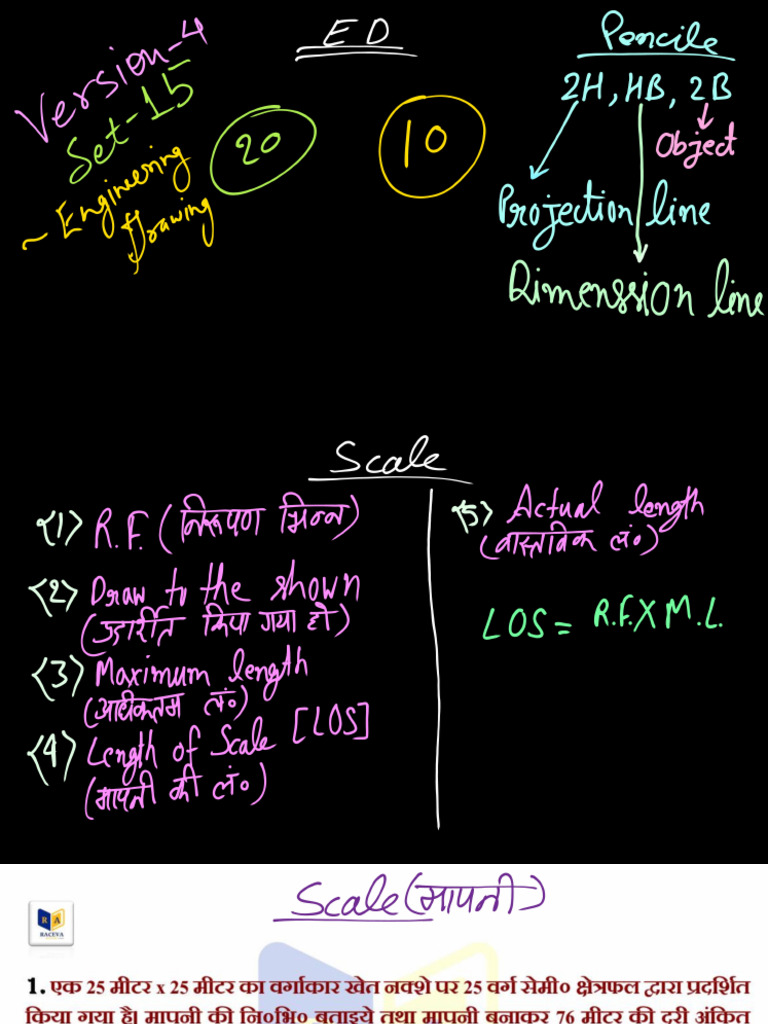 Version-4
Set-15
~ Engineering
Drawing
E D
20
10
Pencile
2H, HB, 2B
Object
Projection line
Dimenssion line
Scale
<1> R.F. (निरूपण भिन्न)
<2> Draw to the shown
(उदर्हारित किया गया हो)
<3> Maximum length
(अधिकतम लं०)
<4> Length of Scale [LOS]
(मापनी की लं०)
<5> Actual length
(वास्तविक लं०)
LOS = R.F. X M.L.
Scale (मापनी)
RACEVA
1. एक 25 मीटर x 25 मीटर का वर्गाकार खेत नक्शे पर 25 वर्ग सेमी० क्षेत्रफल द्वारा प्रदर्शित
किया गया है। मापनी की नि०भि० बताइये तथा मापनी बनाकर 76 मीटर की दूरी अंकित